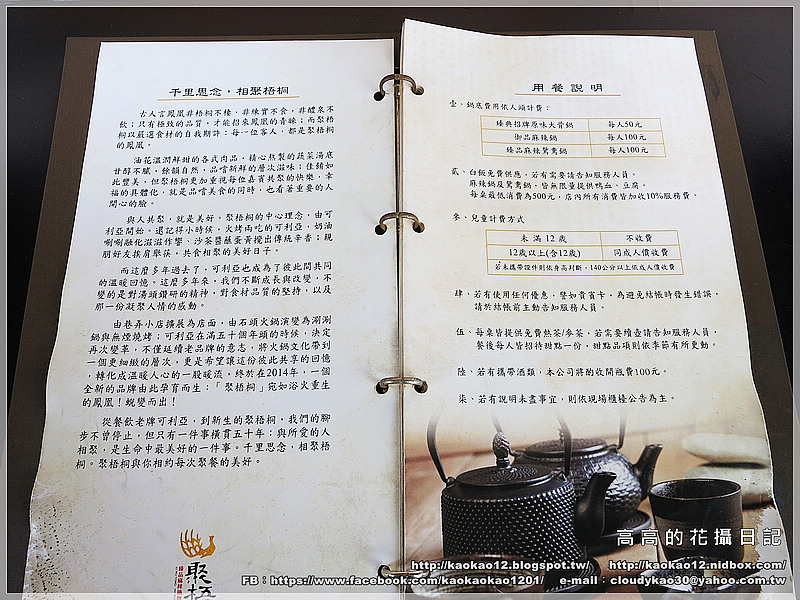 千里思念，相聚梧桐
古人言鳳凰非梧桐不棲，非練實不食，非醴泉不
飲；只有極致的品質，才能招來鳳凰的青睞；而聚梧
桐以嚴選食材的自我期許：每一位客人，都是聚梧桐
的鳳凰。
油花溫潤鮮甜的各式肉品，精心熬製的蔬菜湯底
甘醇不膩、餘韻自然，品嚐新鮮的層次滋味；佳餚如
此豐美，但聚梧桐更加重視每位嘉賓共聚的快樂，幸
福的具體化，就是品嚐美食的同時，也看著重要的人
開心的臉。
與人共聚，就是美好。聚梧桐的中心理念，由可
利亞開始，還記得小時候，火烤兩吃的可利亞，奶油
唰唰融化滋滋作響、沙茶醬蘸蛋黃攪出傳統辛香；親
朋好友挨肩舉筷，共食相聚的美好日子。
而這麼多年過去了，可利亞也成為了彼此間共同
的溫暖回憶。這麼多年來，我們不斷成長與改變，不
變的是對湯頭鑽研的精神，對食材品質的堅持，以及
那一份凝聚人情的感動。
由巷弄小店擴展為店面，由石頭火鍋演變為涮涮
鍋與無煙燒烤；可利亞在滿五十個年頭的時候，決定
再次變革，不僅延續老品牌的意志，將火鍋文化帶到
一個更細緻的層次，更是希望讓這份彼此共享的回憶
，轉化成溫暖人心的一股暖流，終於在2014年，一個
全新的品牌由此孕育而生：「聚梧桐」宛如浴火重生
的鳳凰！蛻變而出！
從餐飲老牌可利亞，到新生的聚梧桐，我們的腳
步不曾停止，但只有一件事橫貫五十年：與所愛的人
相聚，是生命中最美好的一件事。千里思念，相聚梧
桐。聚梧桐與你相約每次聚餐的美好。
聚梧
用餐說明
壹、鍋底費用依人頭計費：
臻典招牌原味大骨鍋 每人50元
御品麻辣鍋 每人100元
臻品麻辣鴛鴦鍋 每人100元
貳、白飯免費供應，若有需要請告知服務人員。
麻辣鍋及鴛鴦鍋，皆無限量提供鴨血、豆腐。
每桌最低消費為500元，店內所有消費皆加收10%服務費。
參、兒童計費方式
未滿 12 歲 不收費
12歲以上(含12歲) 同成人價收費
若未攜帶證件則依身高判斷，140公分以上依成人價收費
肆、若有使用任何優惠，譬如貴賓卡，為避免結帳時發生錯誤，
請於結帳前主動告知服務人員。
伍、每桌皆提供免費熱茶/麥茶，若需要續壺請告知服務人員，
餐後每人皆招待甜點一份，甜點品項則依季節有所更動。
陸、若有攜帶酒類，本公司將酌收開瓶費100元。
柒、若有說明未盡事宜，則依現場櫃檯公告為主。
高高的花攝日記
http://kaokao12.blogspot.tw/ http://kaokao12.nidbox.com/
FB：https://www.facebook.com/kaokaokao1201/ e-mail：cloudykao30@yahoo.com.tw